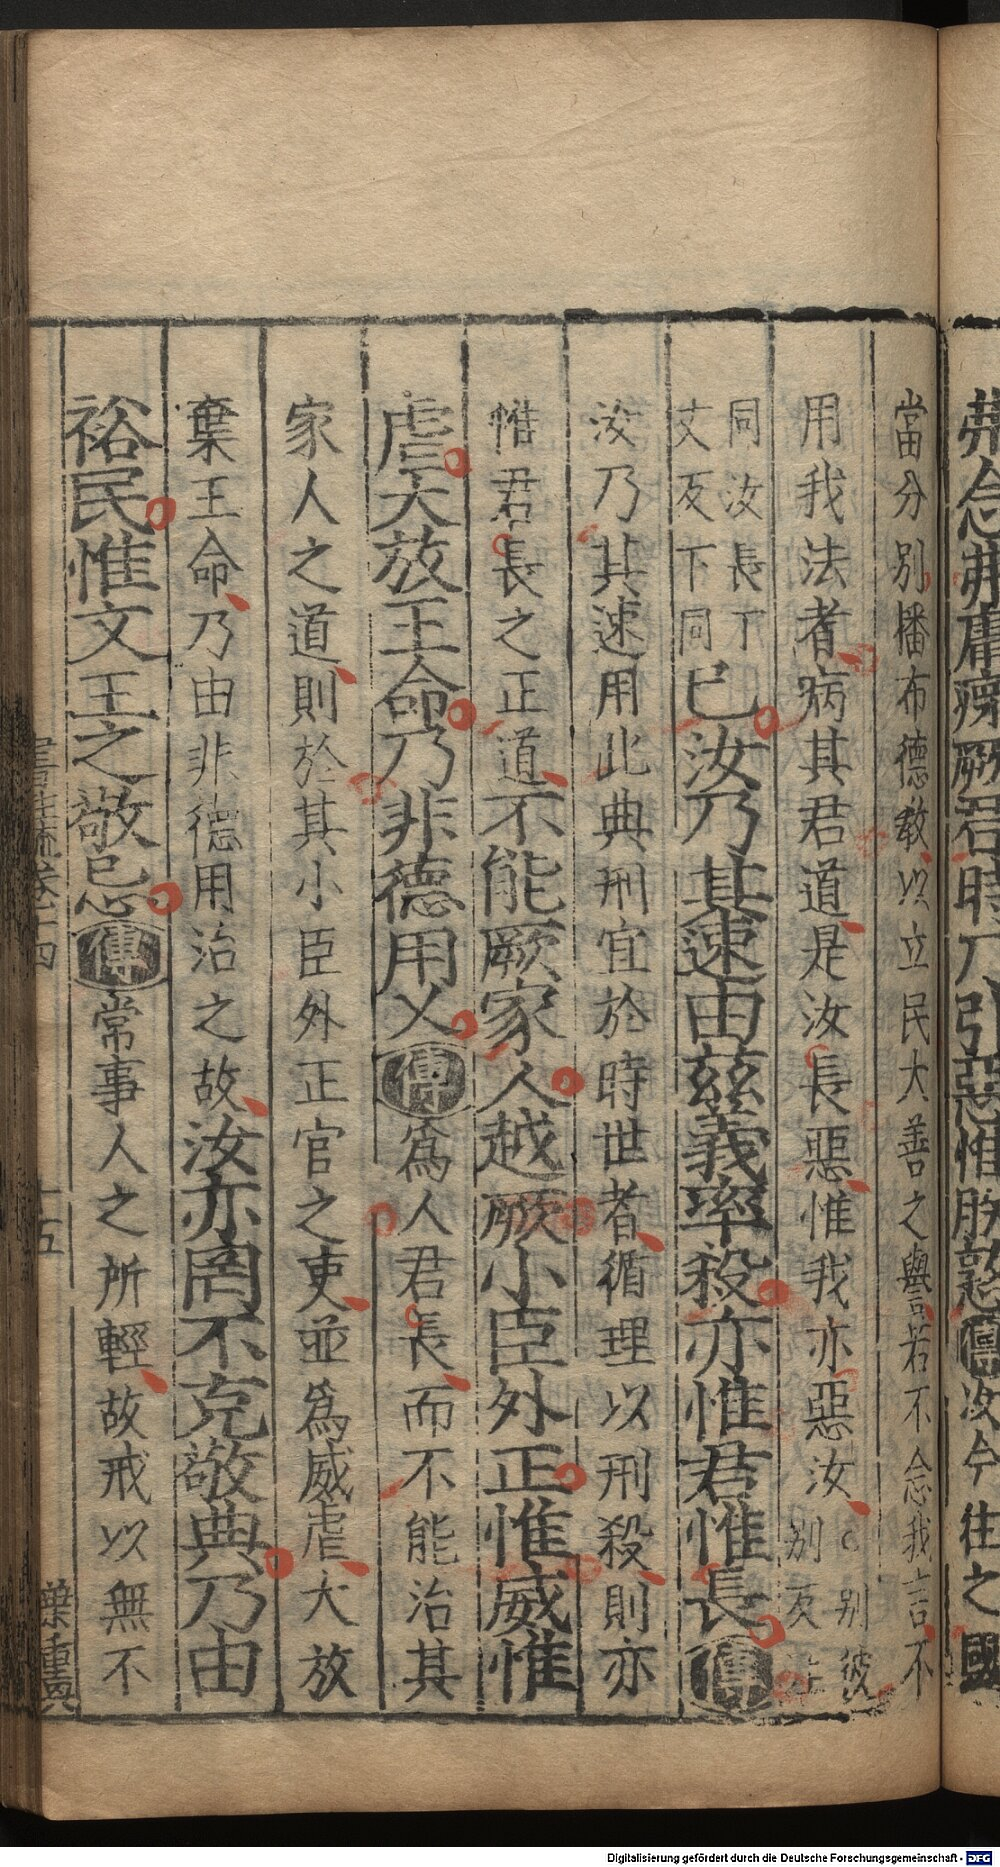 弗念弗庸瘝厥君時乃引惡惟朕憝傳汝今往之國
當分别播布德教以立民大善之譽若不念我言不
用我法者病其君道是汝長惡惟我亦惡汝○别彼
别反
同汝長丁
丈反下同
已汝乃其速由兹義率殺亦惟君惟長傳
汝乃其速用此典刑宜於時世者循理以刑殺則亦
惟君長之正道不能厥家人越厥小臣外正惟威惟
虐大放王命乃非德用乂傳爲人君長而不能治其
家人之道則於其小臣外正官之吏並爲威虐大放
棄王命乃由非德用治之故汝亦罔不克敬典乃由
裕民惟文王之敬忌傳常事人之所輕故戒以無不
十五
Digitalisierung gefördert durch die Deutsche Forschungsgemeinschaft - DFG